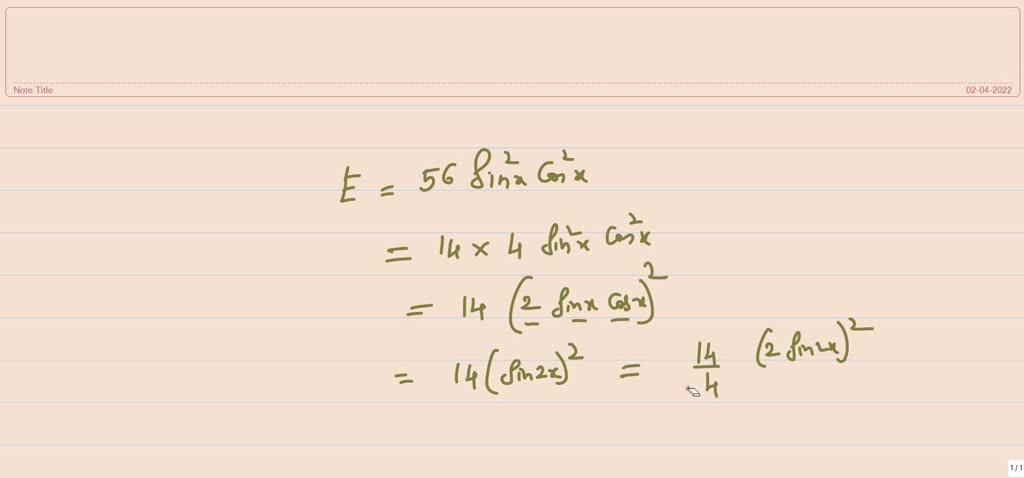 Note Title
02-04-2022
E = 56 Sin²x Cos²x
= 14 × 4 Sin²x Cos²x
= 14 (2 Sinx Cosx)²
= 14 (Sin2x)² = 14/4 (2 Sin2x)²
1 / 1